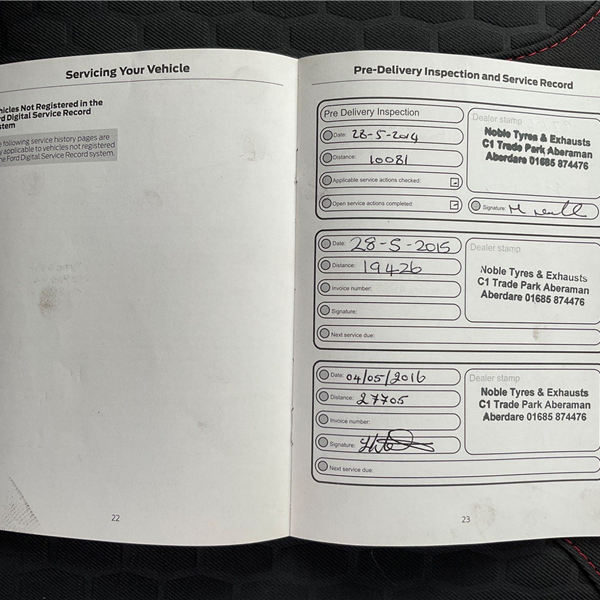 Servicing Your Vehicle
hicles Not Registered in the
rd Digital Service Record
stem
following service history pages are
y applicable to vehicles not registered
e Ford Digital Service Record system.
22
Pre-Delivery Inspection and Service Record
Pre Delivery Inspection
Date: 28-5-2014
Distance: 10081
Applicable service actions checked:
Open service actions completed:
Dealer stamp
Noble Tyres & Exhausts
C1 Trade Park Aberaman
Aberdare 01685 874476
Signature:
Date: 28-5-2015
Distance: 19426
Invoice number:
Signature:
Next service due:
Dealer stamp
Noble Tyres & Exhausts
C1 Trade Park Aberaman
Aberdare 01685 874476
Date: 04/05/2016
Distance: 27705
Invoice number:
Signature:
Next service due:
Dealer stamp
Noble Tyres & Exhausts
C1 Trade Park Aberaman
Aberdare 01685 874476
23